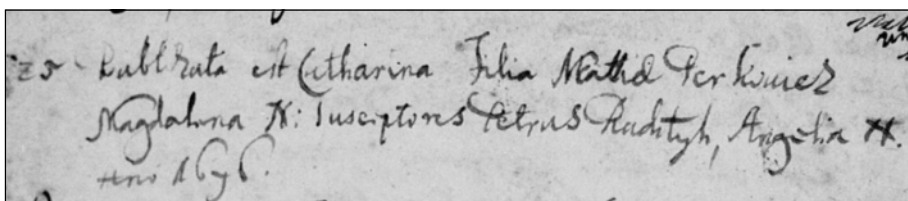 25 Babtizata est Catharina Filia Mathæ Perkouicz
Magdalena N: Susceptores Petrus Raditzh, Angelia N.
Anno 1696.